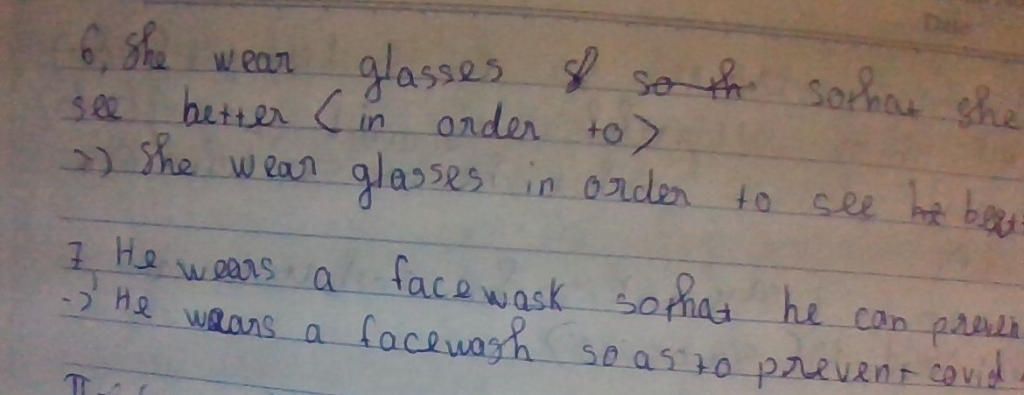 6, She wear glasses so th sothat she
see better < in order to >
=>) She wear glasses in order to see be bett
7, He wears a facewask sothat he can preven
-> He wears a facewash so as to prevent covid
II